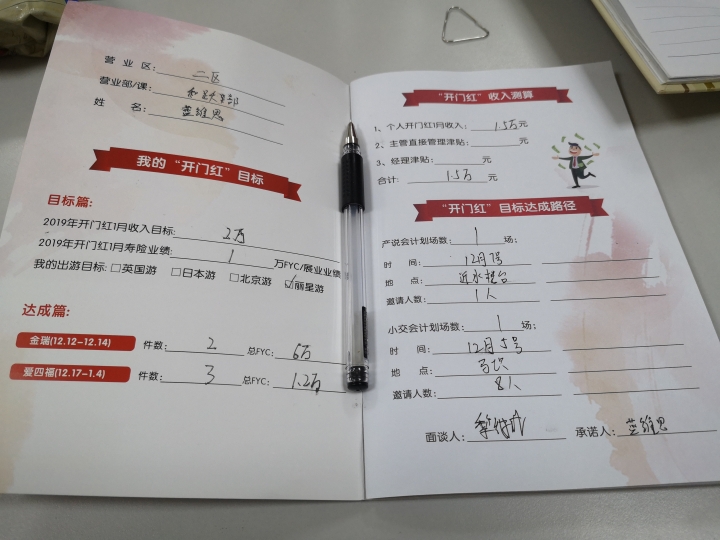 营 业 区: 二区
营业部/课: 和昊大部
姓 名: 蓝维思
我的“开门红”目标
目标篇:
2019年开门红1月收入目标: 2万
2019年开门红1月寿险业绩: 1 万FYC/展业业绩
我的出游目标: □英国游 □日本游 □北京游 ☑丽星游
达成篇:
金瑞(12.12-12.14) 件数: 2 总FYC: 6万
爱四福(12.17-1.4) 件数: 3 总FYC: 1.2万
“开门红”收入测算
1、个人开门红1月收入: 1.5万元
2、主管直接管理津贴: 元
3、经理津贴: 元
合计: 1.5万 元
“开门红”目标达成路径
产说会计划场数: 1 场;
时 间: 12月7号
地 点: 近水楼台
邀请人数: 1人
小交会计划场数: 1 场;
时 间: 12月5号
地 点:
邀请人数: 8人
面谈人: 承诺人: 蓝维思